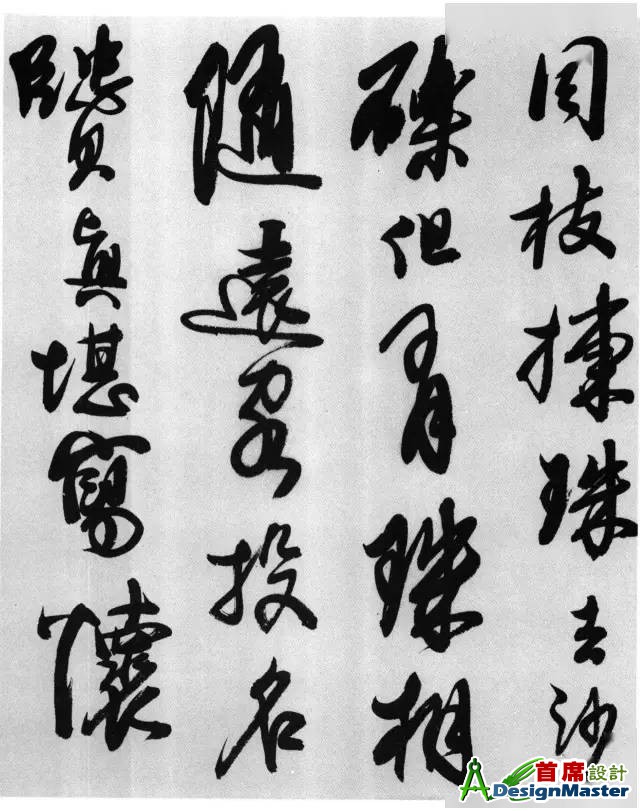 同枝揀珠去沙
礫但有珠相
隨遠客投名
賢真堪寫懷
首席設計
DesignMaster